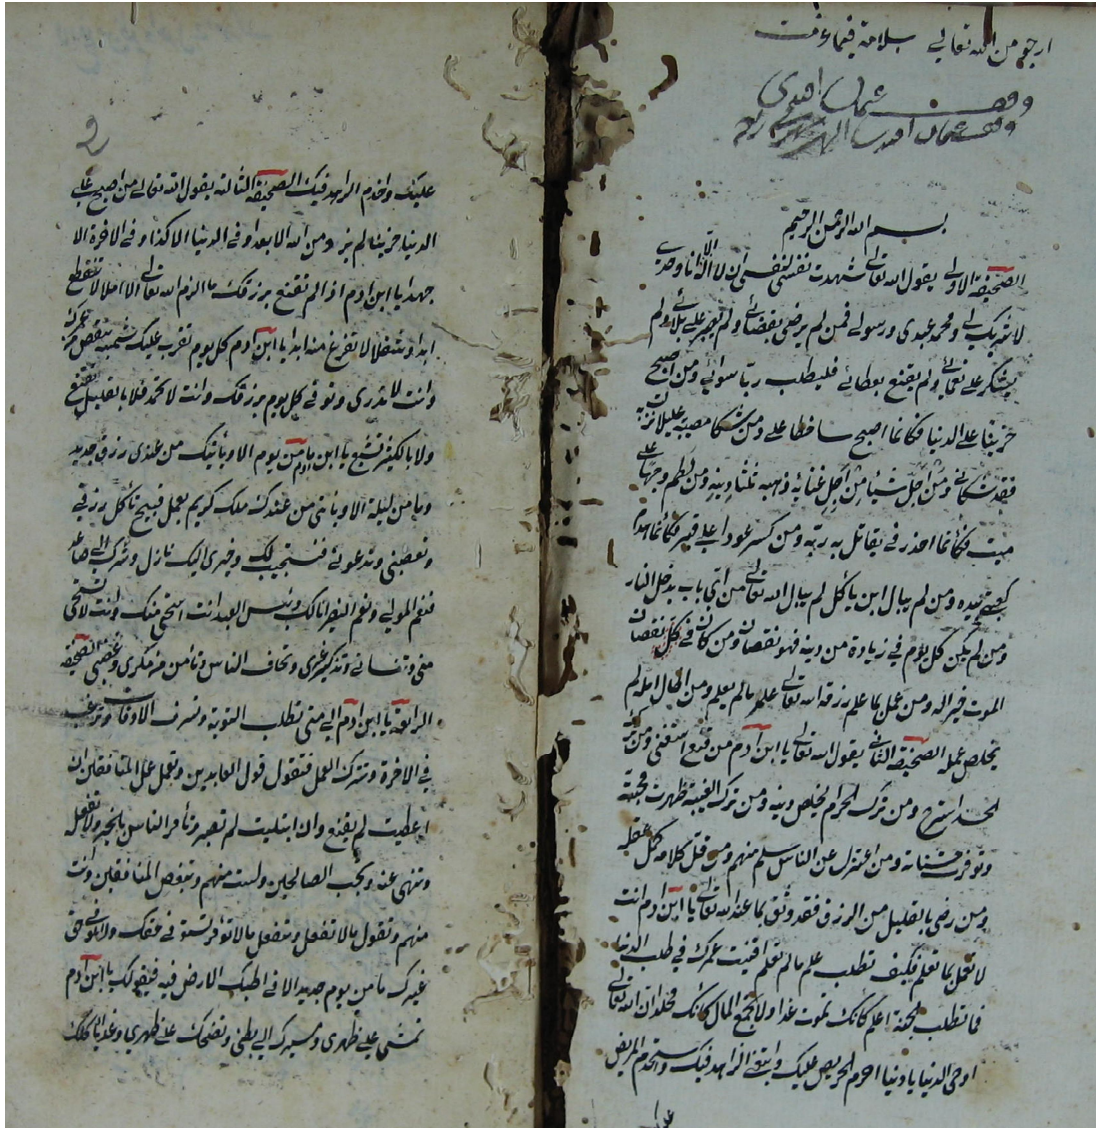 ارجو من الله تعالى بلامة فيما وقفت
وقف عثمان افندى
بسم الله الرحمن الرحيم
الصحيفة الاولى يقول الله تعالى شهدت نفسى لنفسى ان لا اله الا انا وحدى
لا شريك لى ومحمد عبدى ورسولى فمن لم يرض بقضائى ولم يصبر على بلائى ولم
يشكر على نعمائى ولم يقنع بعطائى فليطلب ربا سوائى ومن اصبح
حزينا على الدنيا فكانما اصبح ساخطا على ومن شكا مصيبة نزلت به
فقد شكانى ومن دخل على غنى ذهب ثلثا دينه ومن لطم وجها على
ميت فكانما اخذ رمحا يقاتل به ربه ومن كسر عودا على قبر فكانما هدم
كعبتى بيده ومن لم يبال اين ياكل لم يبال الله تعالى من اى باب يدخل النار
ومن لم يكن كل يوم فى زيادة من دينه فهو نقصان ومن كان فى كل نقصان
الموت خير له ومن عمل بما علم رزقه الله تعالى علم ما لم يعلم ومن اطال امله لم
يخلص عمله الصحيفة الثانى يقول الله تعالى يا ابن آدم من قنع استغنى ومن ترك
الحسد استراح ومن ترك الحرام يخلص دينه ومن ترك الغيبة ظهرت محبته
وتوفرت حسناته ومن اعتزل عن الناس سلم منهم ومن قل كلامه كمل عقله
ومن رضى بالقليل من الرزق فقد وثق بما عند الله تعالى يا ابن ادم انت
لا تعمل بما تعلم فكيف تطلب علم ما لم تعلم افنيت عمرك فى طلب الدنيا
فما تطلب الجنة اعلم كانك تموت غدا ولا تجمع المال كانك مخلد ان الله تعالى
اوحى الدنيا يا دنيا احرم الحريص عليك وابتغى الزاهد فيك واستخدم الحريص
2
عليك واخدم الزاهد فيك الصحيفة الثالثة يقول الله تعالى من اصبح على
الدنيا حزينا لم يزدد من الله الا بعدا وفى الدنيا الا كدا وفى الاخرة الا
جهدا يا ابن ادم اذا لم تقنع برزقك الزم الله تعالى املا لا تنقطع
ابدا وشغلا لا تفرغ منه ابدا يا ابن آدم كل يوم تقرب عليك شمسه ينقص عمرك
وانت لا تدرى وتوفى كل يوم برزقك وانت لا تحمد فلا بالقليل تقنع
ولا بالكثير تشبع يا ابن ادم ما من يوم الا وياتيك من عندى رزق جديد
وما من ليلة الا وياتى من عندك ملك كريم بعمل قبيح تاكل رزقى
وتعصينى وتدعونى فنستجيب لك وخيرى اليك نازل وشرك الى صاعد
فنعم المولى ونعم النصير انا لك وبئس العبد انت استحى منك وانت لا تستحى
منى وتنسانى وتذكر غيرى وتخاف الناس وتامن من مكرى وغضبى الصحيفة
الرابعة يا ابن آدم الى متى تطلب التوبة وتسرف الاوقات وترغب
فى الاخرة وتترك العمل فتقول قول العابدين وتعمل عمل المنافقين ان
اعطيت لم تقنع وان ابتليت لم تصبر وتامر الناس بالخير ولا تفعل
وتنهى عنه وتحب الصالحين ولست منهم وتبغض المنافقين وانت
منهم وتقول ما لا تفعل وتفعل ما لا تؤمر تستوفى حقك ولا توفى حق
غيرك ما من يوم جديد الا فى الارض فيه فيقول لك يا ابن آدم
تمشى على ظهرى ومصيرك الى بطنى وتضحك على ظهرى